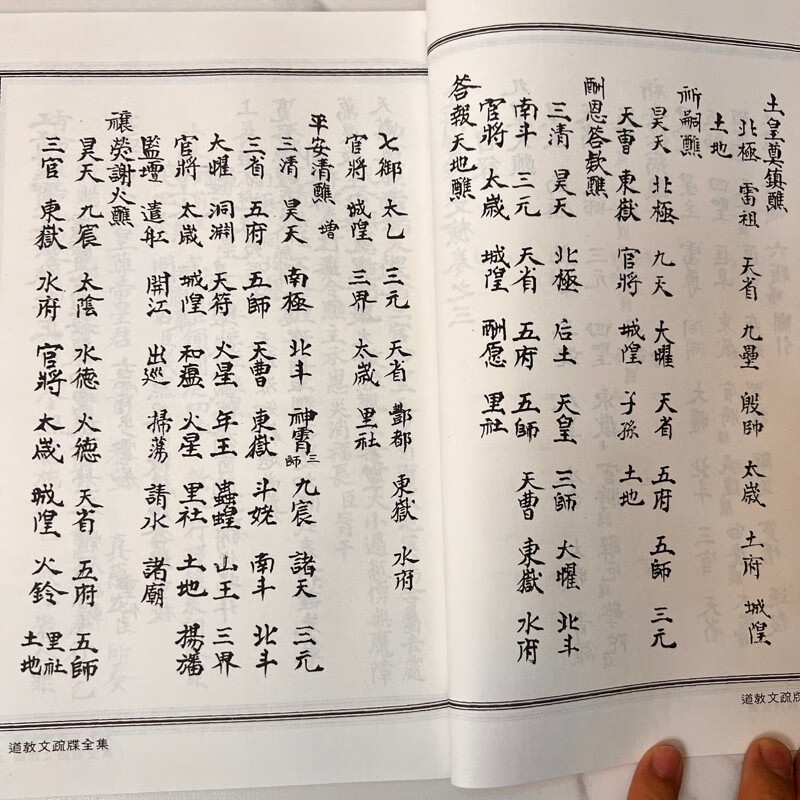 土皇奠鎮醮
北極 雷祖 天省 九壘 殷帥 太歲 土府 城隍
土地
祈嗣醮
昊天 北極 九天 大曜 天省 五府 五師 三元
天曹 東嶽 官將 城隍 子孫 土地
酬恩答款醮
三清 昊天 北極 后土 天皇 三師 大曜 北斗
南斗 三元 天省 五府 五師 天曹 東嶽 水府
官將 太歲 城隍 酬愿 里社
答報天地醮
七御 太乙 三元 天省 酆都 東嶽 水府
官將 城隍 三界 太歲 里社
平安清醮 增
三清 昊天 南極 北斗 神霄三師 九宸 諸天 三元
三省 五府 五師 天曹 東嶽 斗姥 南斗 北斗
大曜 洞淵 天符 火星 年王 蟲蝗 山王 三界
官將 太歲 城隍 和瘟 火星 里社 土地 揚旛
監壇 遣舡 開江 出巡 掃蕩 請水 諸廟
禳熒謝火醮
昊天 九宸 太陰 水德 火德 天省 五府 五師
三官 東嶽 水府 官將 太歲 城隍 火鈴 里社土地
道教文疏牒全集
道教文疏牒